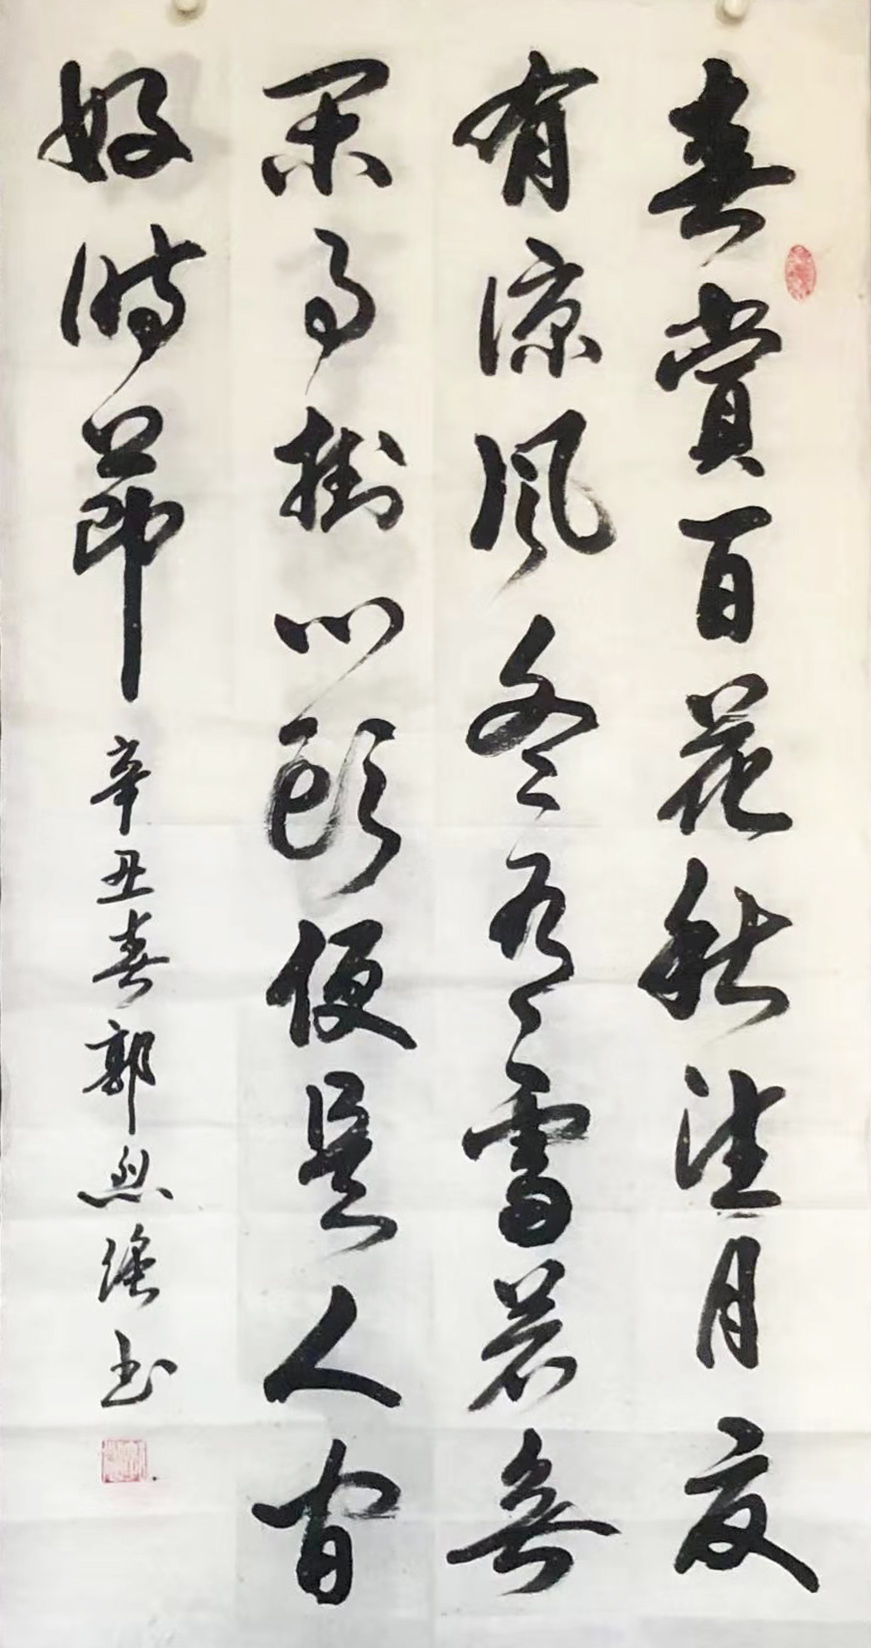 春賞百花秋望月夏
有涼風冬有雪若無
閑事掛心頭便是人間
好時節 辛丑春郭 書